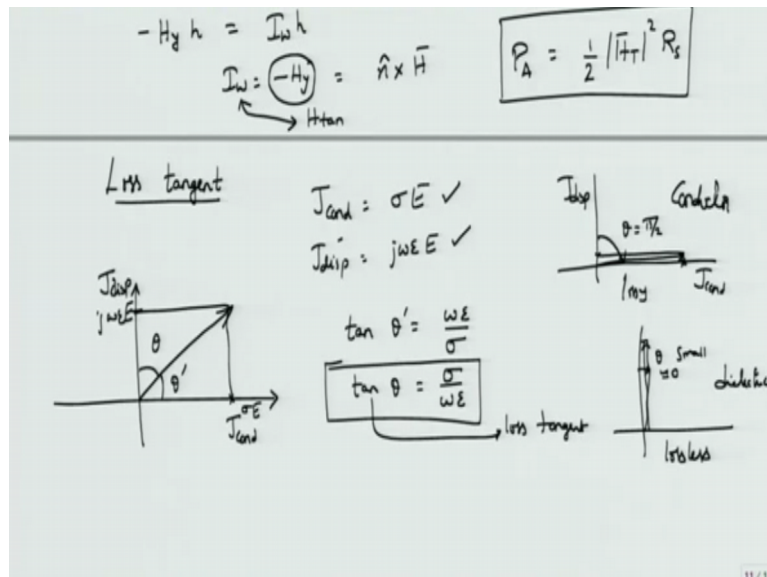 - Hy h = Iw h
Iw = -Hy = n̂ x H̄
Htan
P_A = 1/2 |H̄_T|² R_s
Loss tangent
J_cond = σE ✓
J_disp = jωε E ✓
J_disp
jωεE
θ
θ'
σE
J_cond
tan θ' = ωε/σ
tan θ = σ/ωε
loss tangent
J_disp
θ = π/2
J_cond
θ small
≈0
lossless